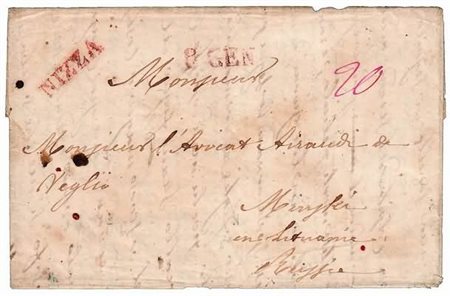 NIZZA
8 GEN
Monsieur
20
Monsieur l'Avocat Airaudi de
Veglio
Minski
en Lituanie
Russie